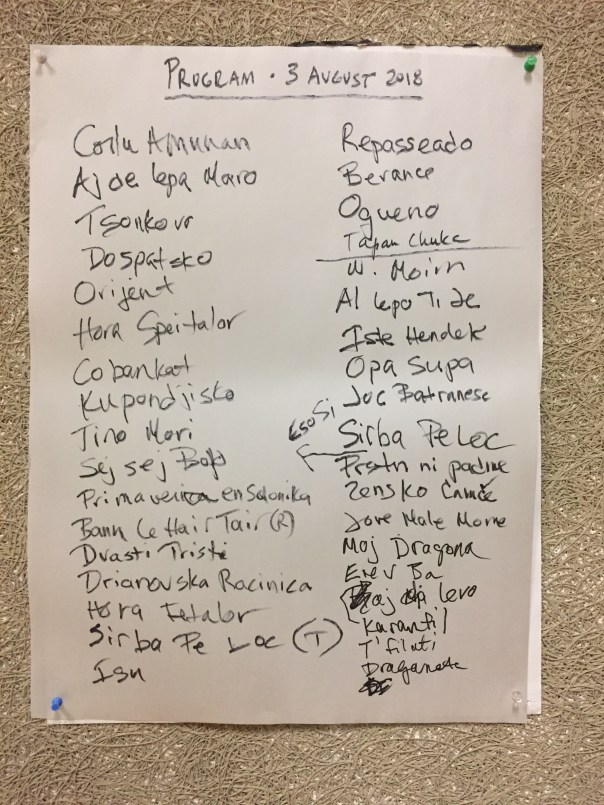 PROGRAM · 3 AUGUST 2018
Coilu Amunan
Ajde lepa Maro
Tsonkovo
Dospatsko
Orijent
Hora Speitalor
Cobankat
Kupondjisko
Tino Mori
Sej sej Bop
Primavera en Salonika
Bann Ce Hair Tair (R)
Dvasti Tristi
Drianovska Racinica
Hora Fetalor
Sirba Pe Loc (T)
Isn
Repasseado
Berance
Ogueno
Tapan Chukc
W. Moirn
Al lepo Ti Je
Iste Hendek
Opa Supa
Joc Batranesc
Eso Si
Sirba Pe Loc
Prstn ni padne
Zensko Camce
Jove Male Mome
Moj Dragona
Erev Ba
aj da levo
Karanfil
T'filati
Draganate